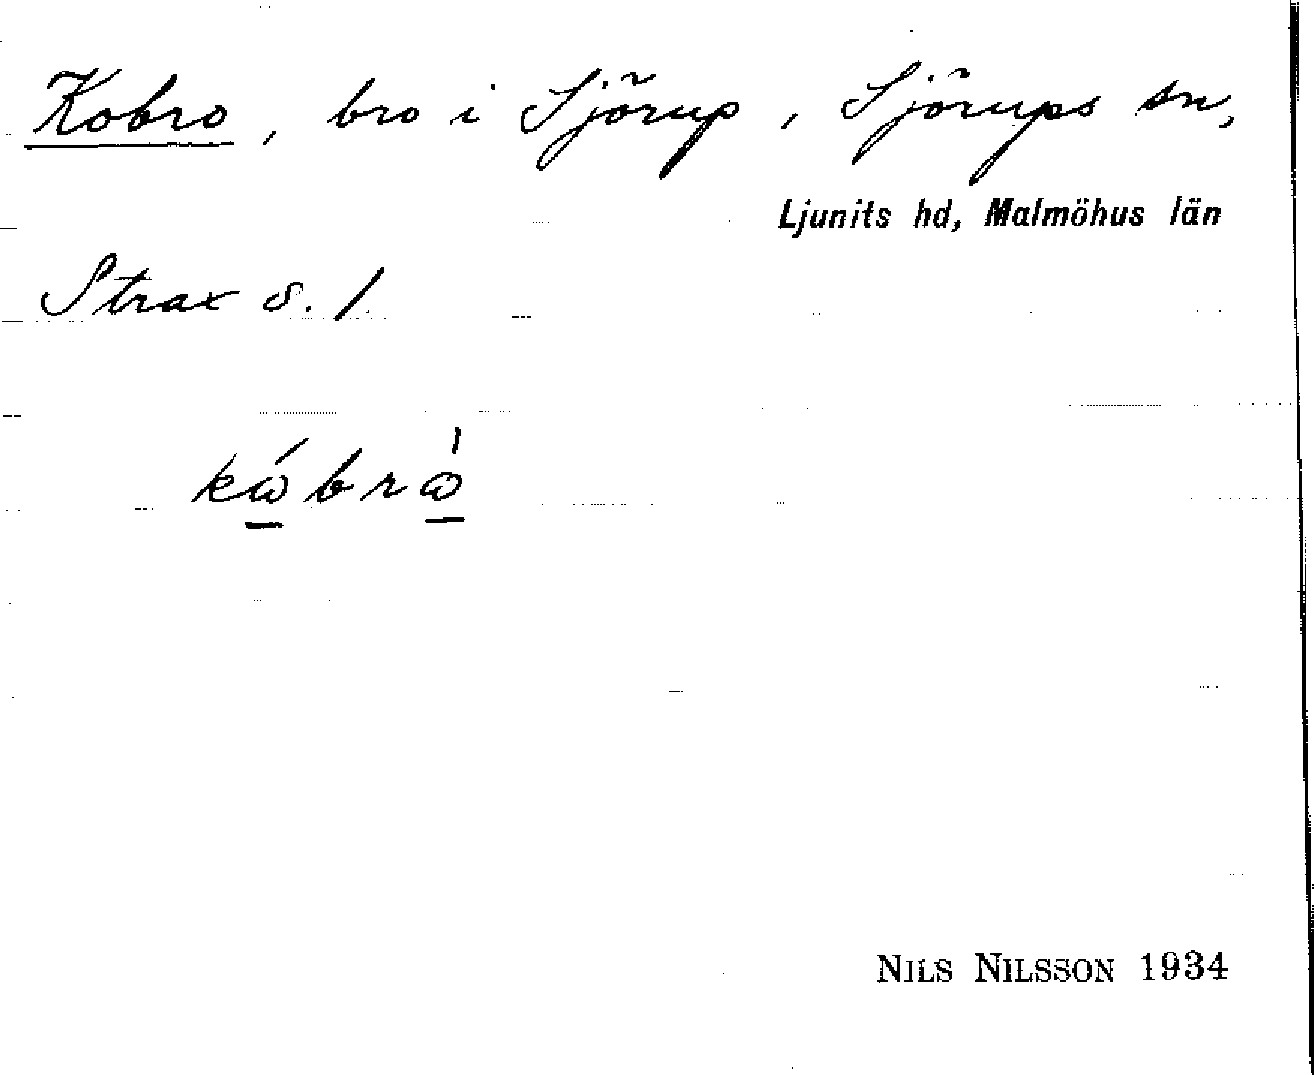 Kobro, bro i Sjörup, Sjörups sn,
Ljunits hd, Malmöhus län
Strax s. /.
kώ̲brὼ̲
NILS NILSSON 1934